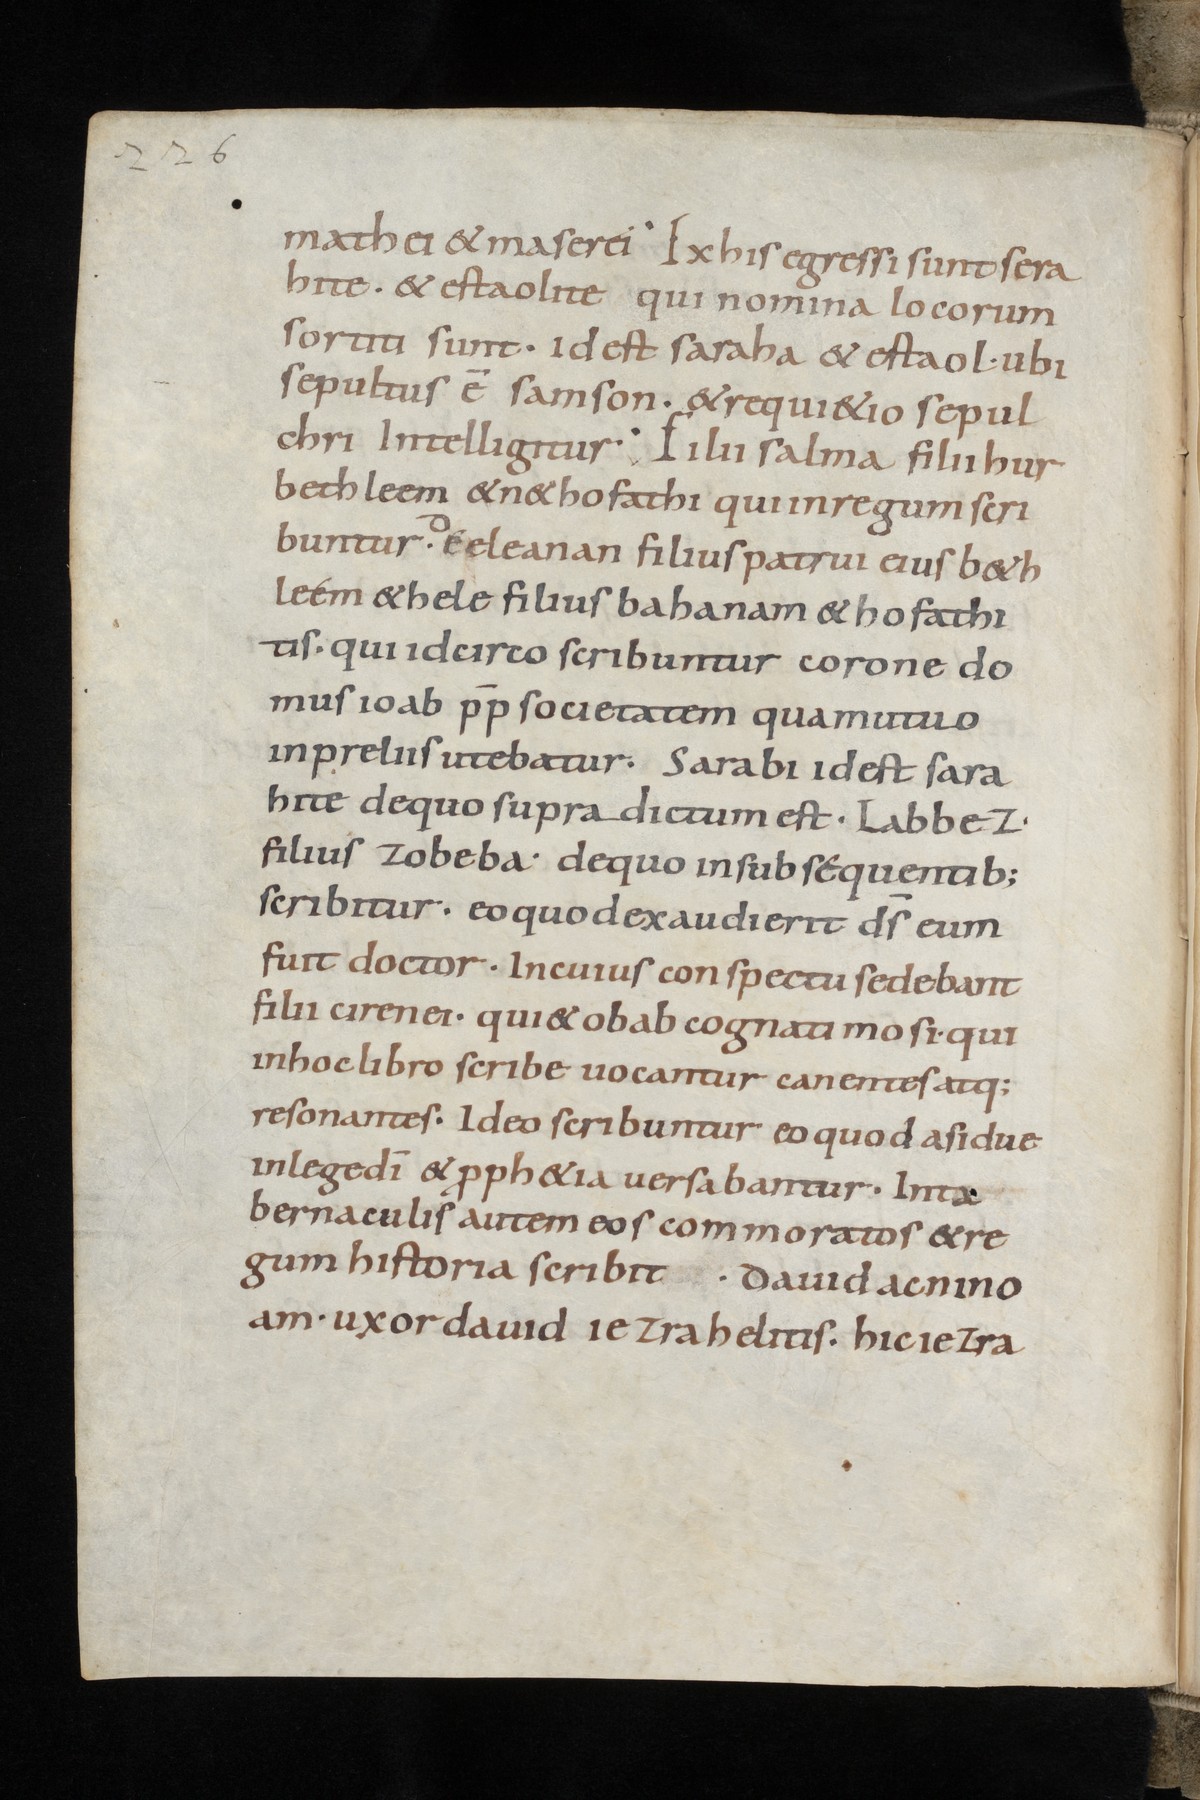 226
mathei & maserei · Ix his egressi sunt sera
hite · & estaolite qui nomina locorum
sortiti sunt · id est saraha & estaol · ubi
sepultus ē samson · & requi&io sepul
chri Intelligitur · Filii salma filii hur
bethleem & n&hofathi qui in regum scri
buntur · éeleanan filius patrui eius b&h
leém & hele filius bahanam & hofathi
tis · qui idcirco scribuntur corone do
mus ioab pp̄ societatem qua mutuo
in preliis utebatur · Sarabi id est sara
hite de quo supra dictum est · Labbez ·
filius zobeba · de quo in subséquentib;
scribitur · eo quod exaudierit ds̄ eum
fuit doctor · In cuius conspectu sedebant
filii cirenei · qui & obab cognati mosi · qui
in hoc libro scribe uocantur canentes atq;
resonantes · Ideo scribuntur eo quod asidue
in lege dī & pph&ia uersabantur · In ta
bernaculis autem eos commoratos & re
gum historia scribit · dauid acnino
am · uxor dauid iezrahelitis · hic iezra